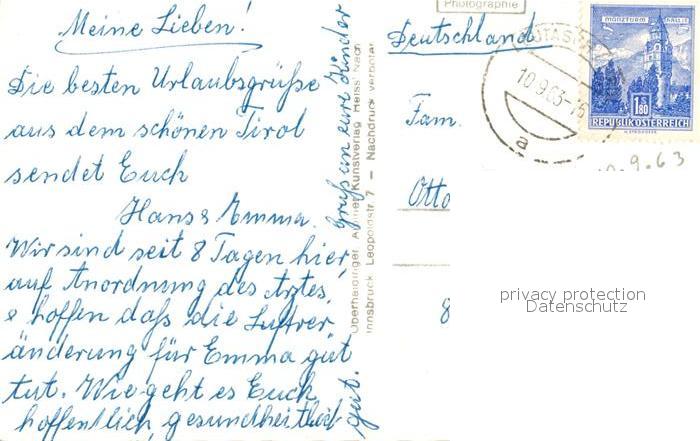 Meine Lieben!
Die besten Urlaubsgrüße
aus dem schönen Tirol
sendet Euch
Hans & Emma.
Wir sind seit 8 Tagen hier,
auf Anordnung des Arztes,
& hoffen daß die Luftver
änderung für Emma gut
tut. Wie geht es Euch
hoffentlich, gesundheitlich
gut.
Gruß an eure Kinder
Kunstverlag "Heiss" Nach
Innsbruck, Leopoldstr. 7 – Nachdruck verboten
Photographie
Deutschland
Fam.
Otto
8
10.9.63-16
a
MÜNZTURM HALL i.T.
1.80
REPUBLIK ÖSTERREICH
.9.63
privacy protection
Datenschutz